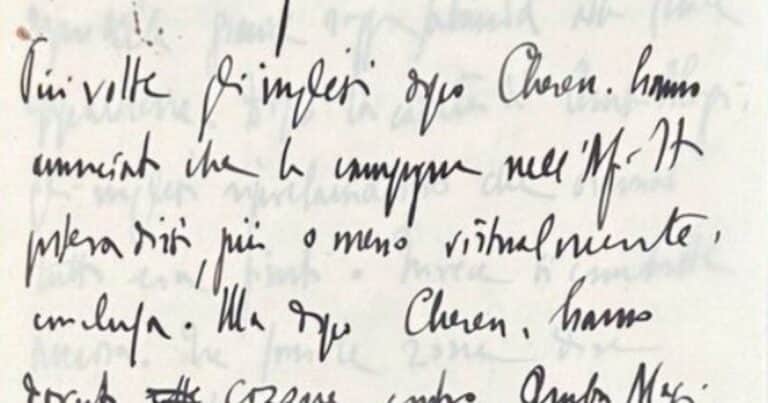 Più volte gli inglesi dopo Cheren. hanno
annunciato che la campagna nell'Af. It
poteva dirsi, più o meno virtualmente,
conclusa. Ma dopo Cheren, hanno
dovuto cozzare contro Amba Alagi.